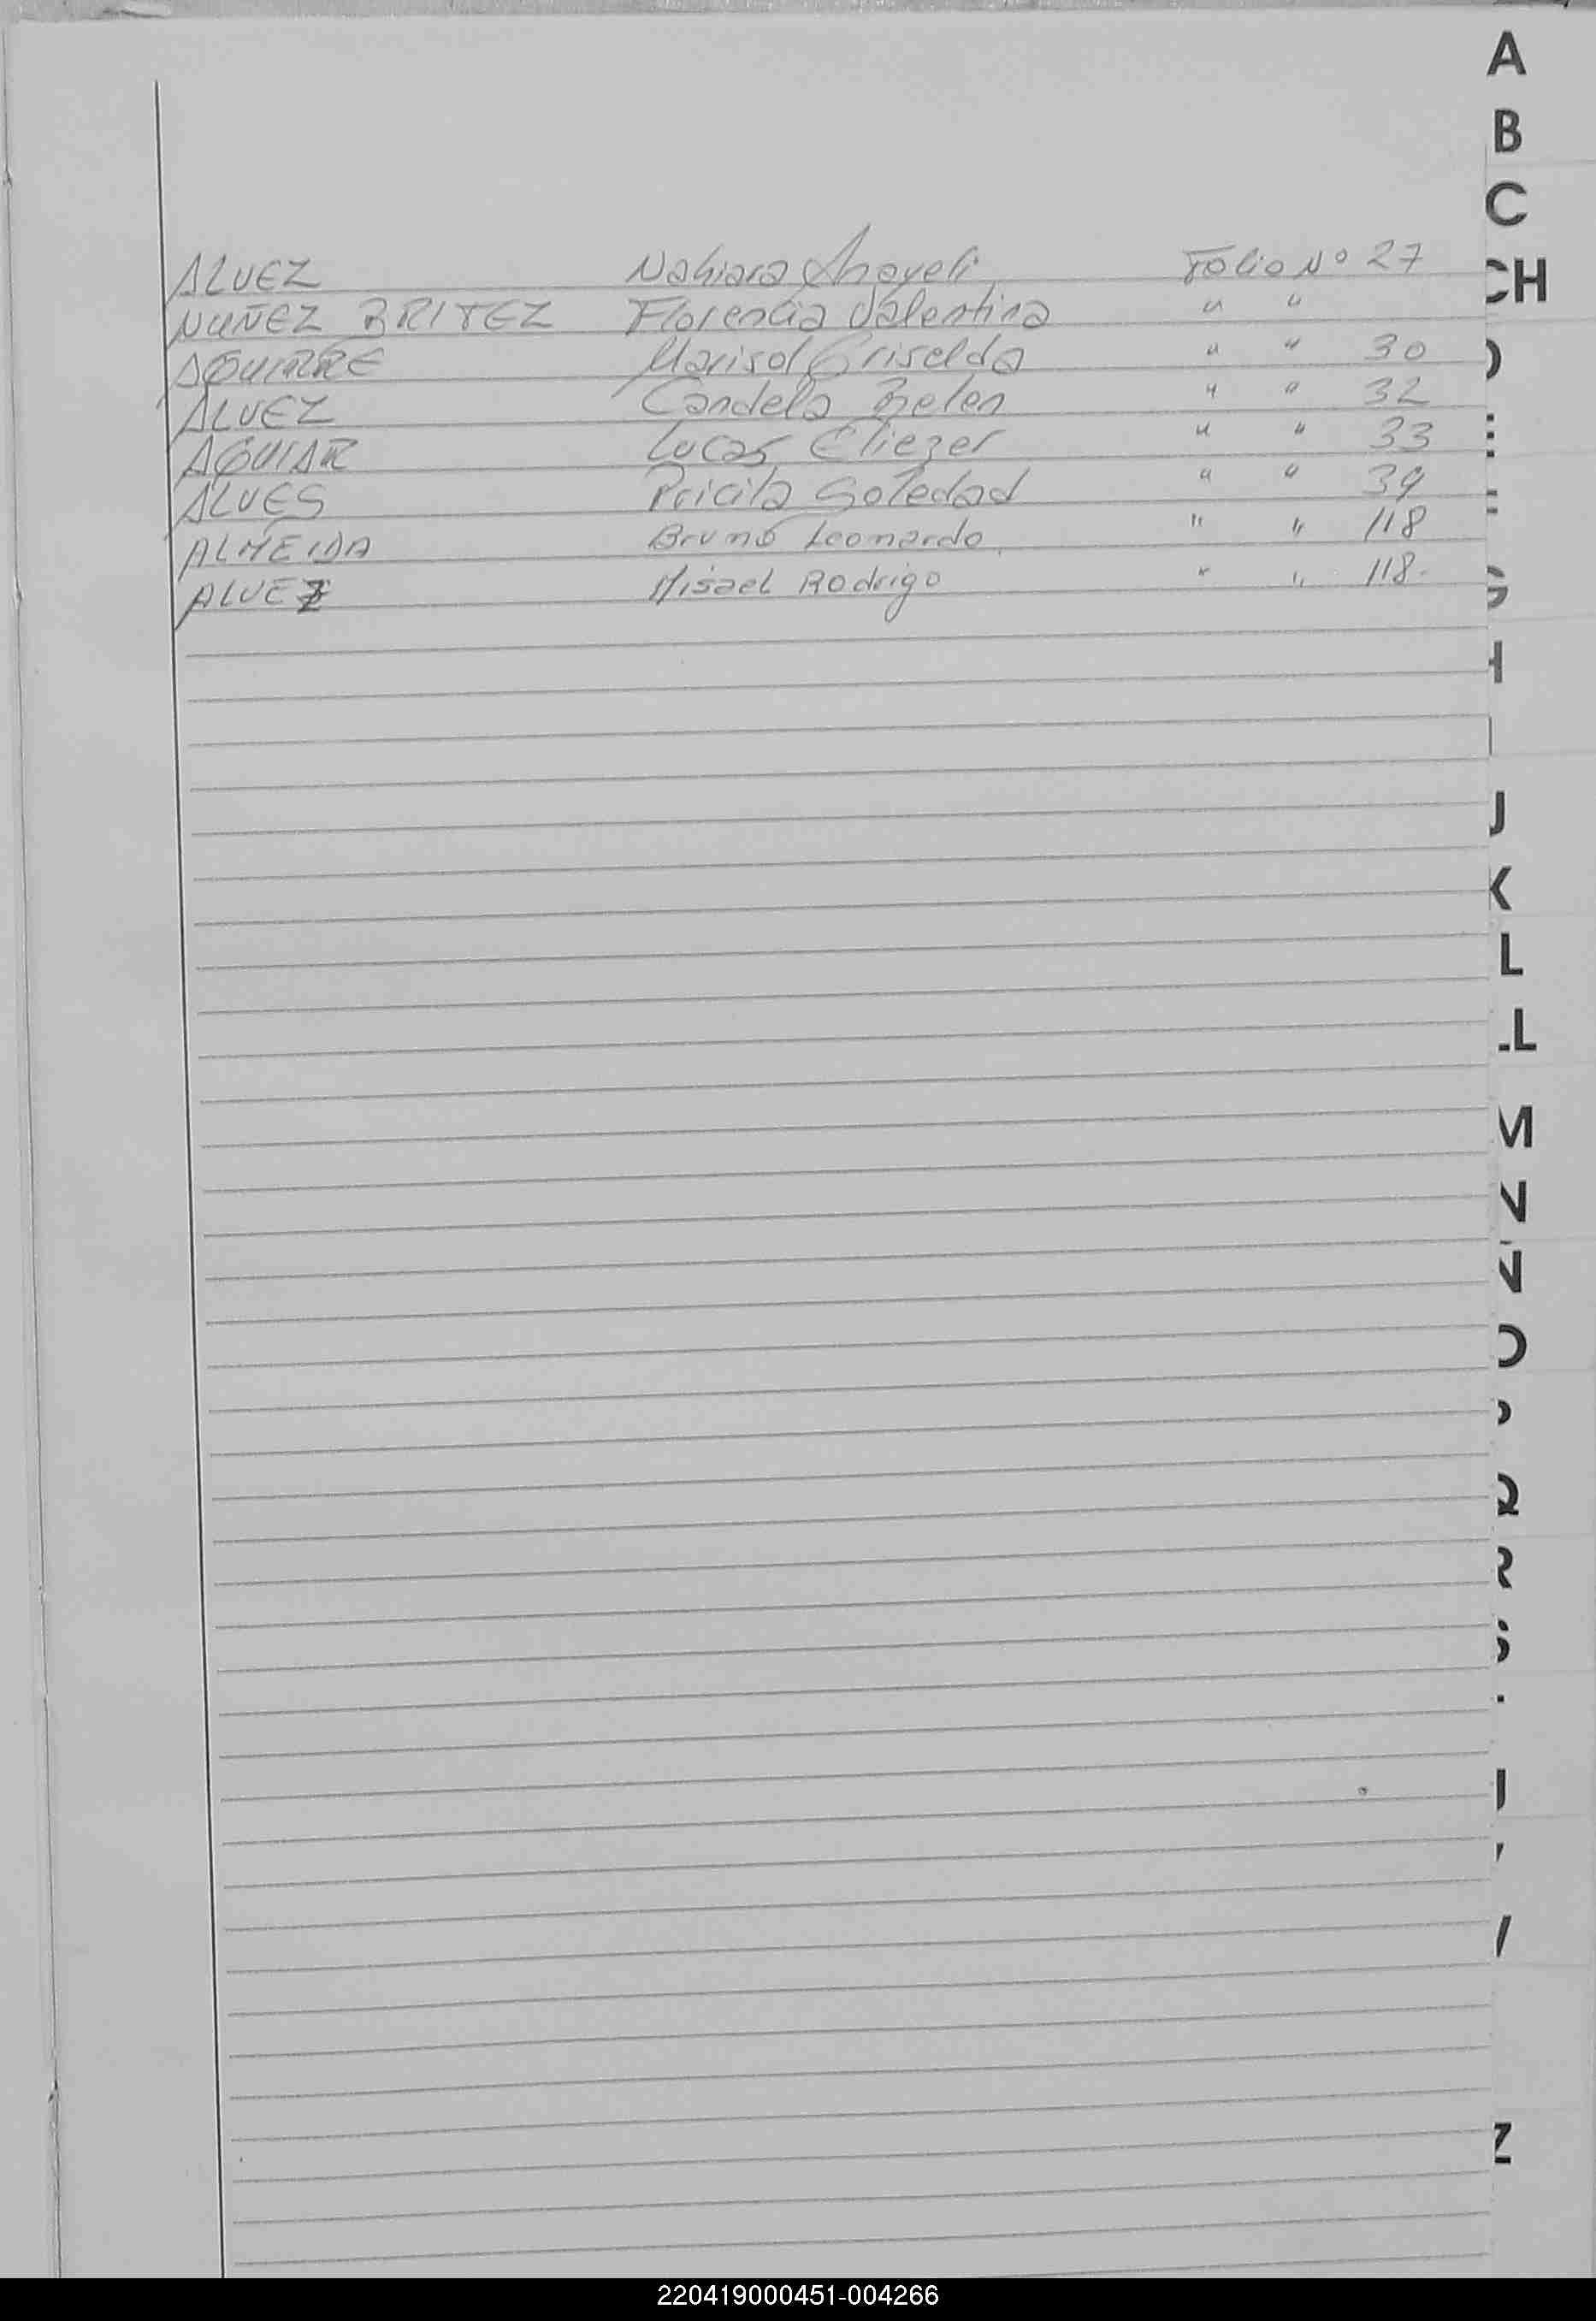 A
B
C
CH
ALVEZ Nahiara Anayeli Folio Nº 27
NUÑEZ BRITEZ Florencia Valentina " "
AGUIRRE Marisol Griselda " " 30
ALVEZ Candela Belen " " 32
AGUIAR Lucas Eliezer " " 33
ALVES Pricila Soledad " " 39
ALMEIDA Bruno Leonardo " " 118
ALVEZ Misael Rodrigo " " 118-
G
H
I
J
K
L
LL
M
N
Ñ
O
P
Q
R
S
U
V
Z
220419000451-004266